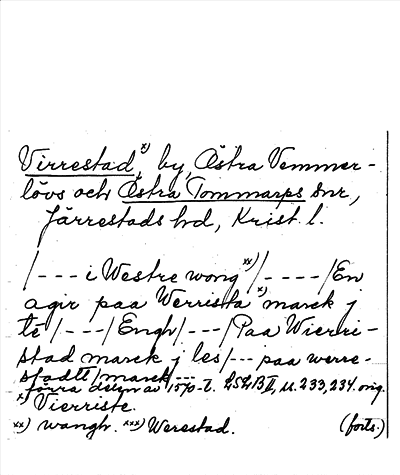 Virrestad,ˣ⁾ by, Östra Vemmer-
lövs och Östra Tommarps snr,
Järrestads hd, Krist. l.
/--- i Westre wongˣˣ⁾/----/En
agir paa Werristaˣ⁾ marck j
te/---/Engh/---/Paa Wierri-
stad marck j les/--- paa werre-
stadtt marck---
förra delen av 1570-t. LSLB II, s. 233, 234. orig.
x) Vierriste.
xx) wangh. xxx) Werestad. (forts.)